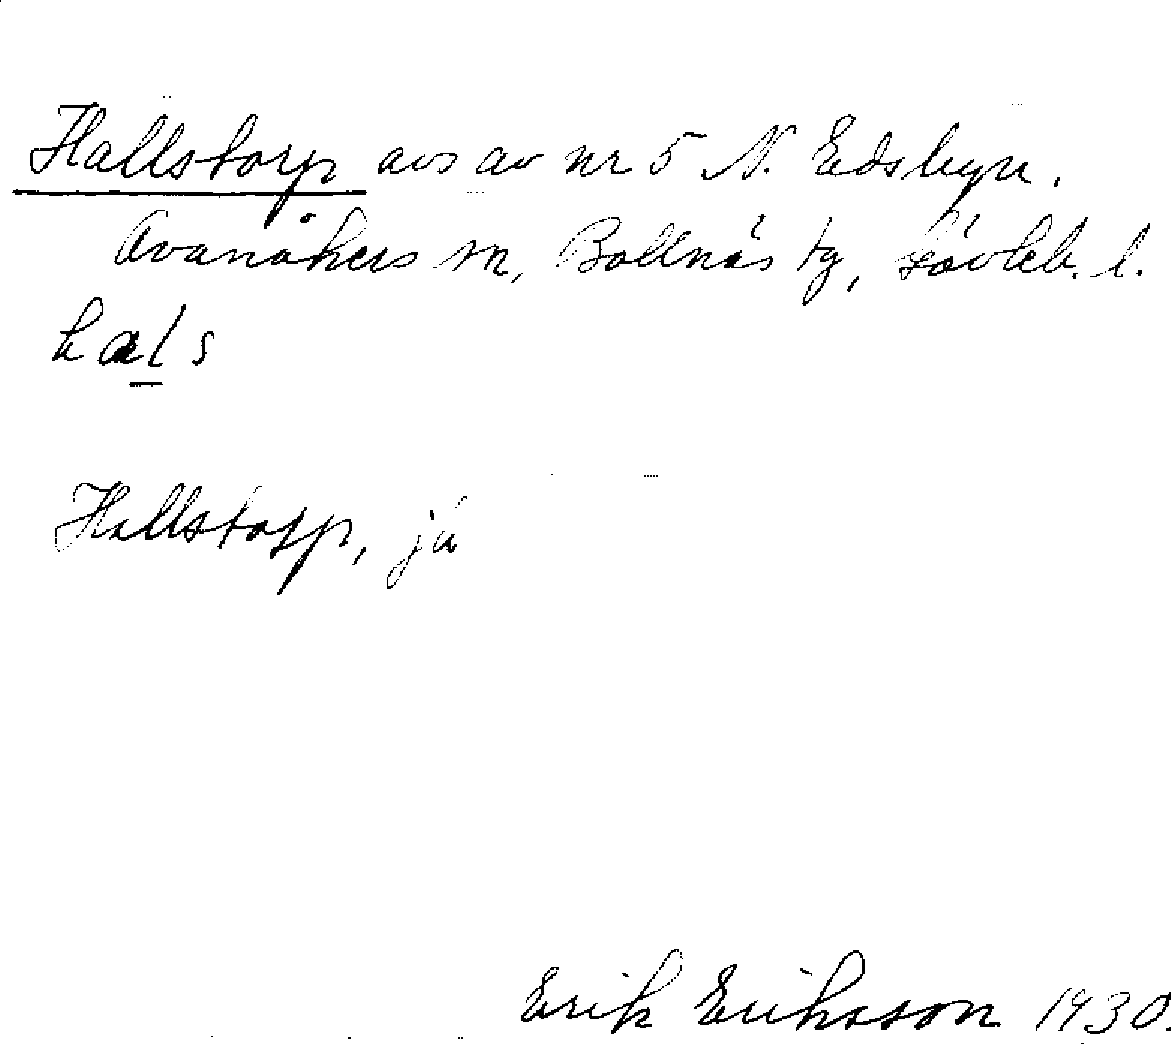 Hallstorp avs av nr 5 N. Edsbyn.
Ovanåkers sn, Bollnäs tg, Gävleb. l.
hals
Hallstorp, já
Erik Eriksson 1930.